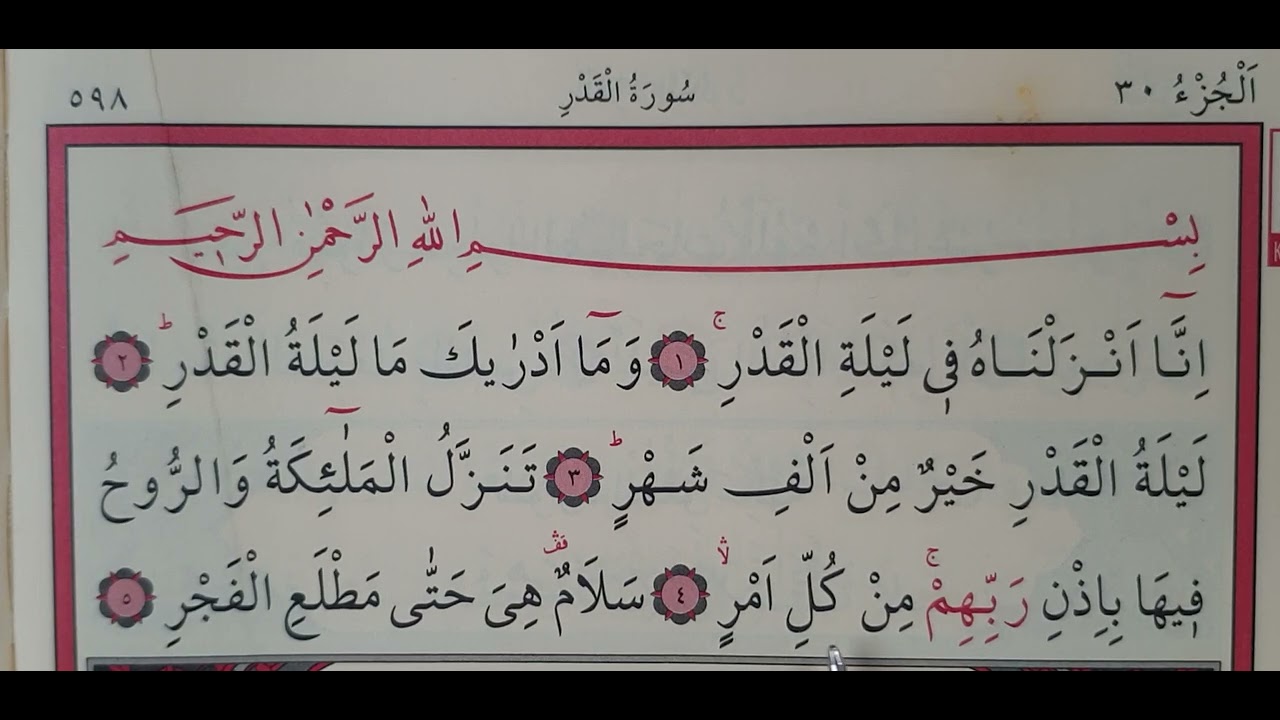 اَلْجُزْءُ ٣٠ سُورَةُ الْقَدْرِ ٥٩٨
بِسْمِ اللّٰهِ الرَّحْمٰنِ الرَّحٖيمِ
اِنَّٓا اَنْزَلْنَاهُ فٖى لَيْلَةِ الْقَدْرِۚ ١ وَمَٓا اَدْرٰيكَ مَا لَيْلَةُ الْقَدْرِؕ ٢
لَيْلَةُ الْقَدْرِ خَيْرٌ مِنْ اَلْفِ شَهْرٍؕ ٣ تَنَزَّلُ الْمَلٰٓئِكَةُ وَالرُّوحُ
فٖيهَا بِاِذْنِ رَبِّهِمْۚ مِنْ كُلِّ اَمْرٍۙ ٤ سَلَامٌ قف هِىَ حَتّٰى مَطْلَعِ الْفَجْرِ ٥